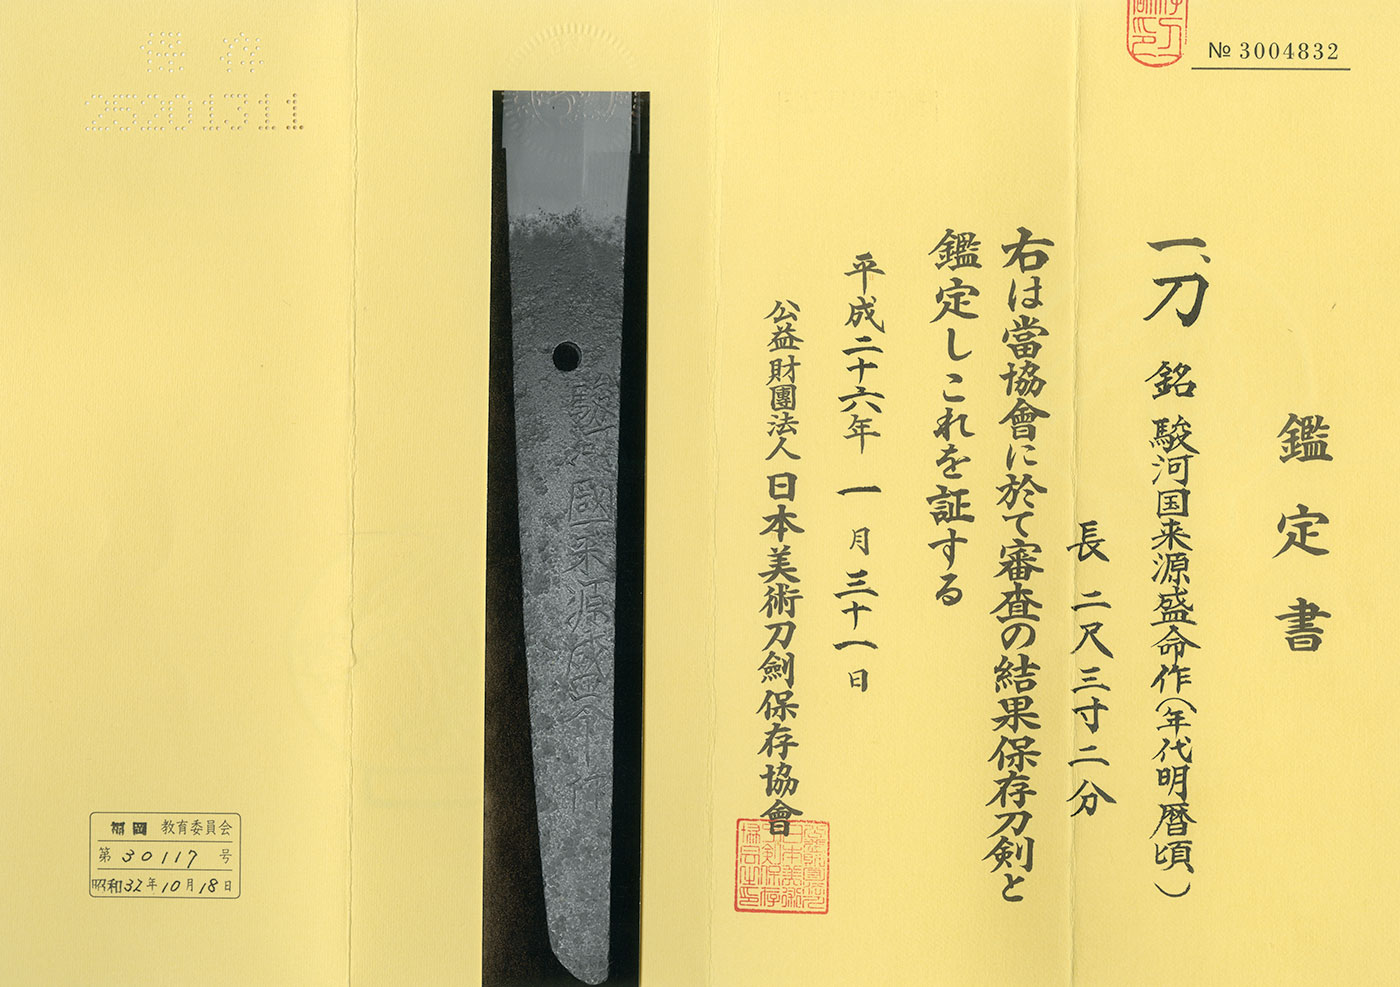 № 3004832
鑑定書
一、刀 銘 駿河国来源盛命作(年代明暦頃)
長 二尺三寸二分
右は當協會に於て審査の結果保存刀剣と
鑑定しこれを証する
平成二十六年 一月 三十一日
公益財團法人 日本美術刀劍保存協會
駿河國来源盛命作
保存
25201311
福岡 教育委員会
第 30117 号
昭和32年10月18日